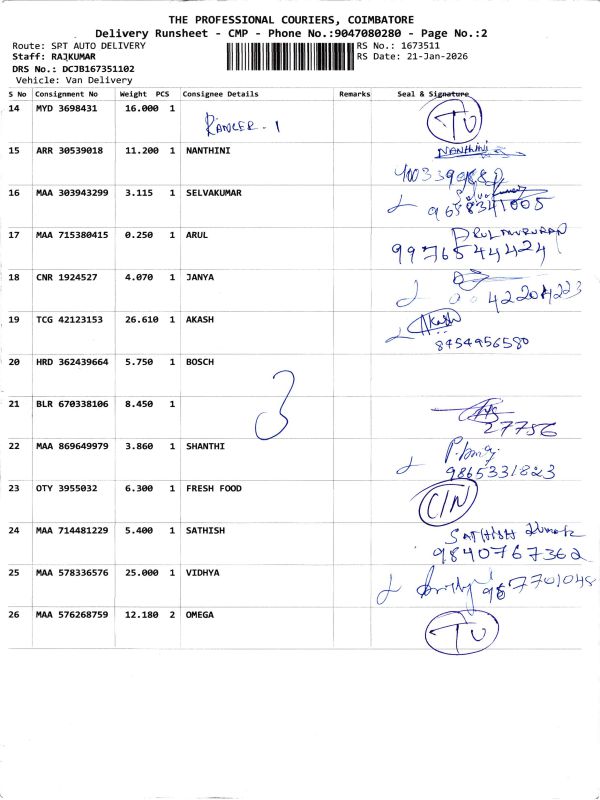 THE PROFESSIONAL COURIERS, COIMBATORE
Delivery Runsheet - CMP - Phone No.:9047080280 - Page No.:2
Route: SPT AUTO DELIVERY
RS No.: 1673511
Staff: RAJKUMAR
RS Date: 21-Jan-2026
DRS No.: DCJB167351102
Vehicle: Van Delivery
S No Consignment No Weight PCS Consignee Details Remarks Seal & Signature
14 MYD 3698431 16.000 1 TU
15 ARR 30539018 11.200 1 NANTHINI NANTHINI
16 MAA 303943299 3.115 1 SELVAKUMAR
9658341005
17 MAA 715380415 0.250 1 ARUL
9976544424
18 CNR 1924527 4.070 1 JANYA
19 TCG 42123153 26.610 1 AKASH Akash
8454956580
20 HRD 362439664 5.750 1 BOSCH
3
21 BLR 670338106 8.450 1
27756
22 MAA 869649979 3.860 1 SHANTHI
9865331823
23 OTY 3955032 6.300 1 FRESH FOOD C/N
24 MAA 714481229 5.400 1 SATHISH SATHISH
9840767362
25 MAA 578336576 25.000 1 VIDHYA
26 MAA 576268759 12.180 2 OMEGA TU